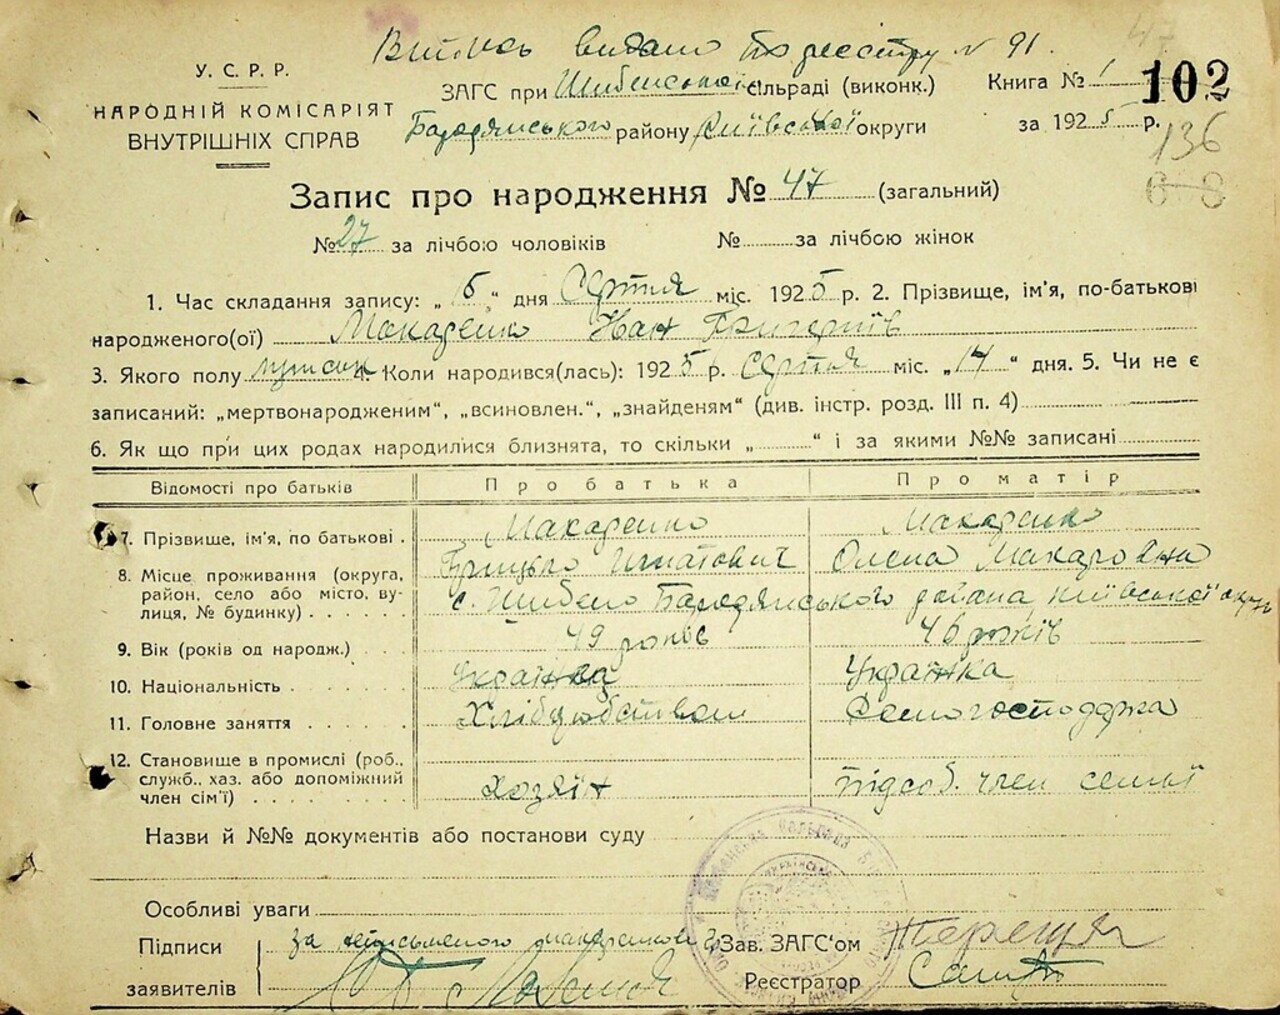 Витись видано по реєстру № 91.
47
У. С. Р. Р.
НАРОДНІЙ КОМІСАРІЯТ
ВНУТРІШНІХ СПРАВ
ЗАГС при Шибенській сільраді (виконк.)
Бородянського району Київської округи
Книга № 1
за 1925 р.
102
136
68
Запис про народження № 47 (загальний)
№ 27 за лічбою чоловіків № за лічбою жінок
1. Час складання запису: „15“ дня Серпня міс. 1925 р. 2. Прізвище, ім'я, по-батькові
народженого(ої) Макаренко Іван Григоріїв
3. Якого полу мужськ 4. Коли народився(лась): 1925 р. Серпня міс. „14“ дня. 5. Чи не є
записаний: „мертвонародженим“, „всиновлен.“, „знайденям“ (див. інстр. розд. III п. 4)
6. Як що при цих родах народилися близнята, то скільки „ “ і за якими №№ записані
Відомості про батьків Про батька Про матір
7. Прізвище, ім'я, по батькові . Макаренко Макаренко
Грицько Игнатович Олена Макаровна
8. Місце проживання (округа,
район, село або місто, ву-
лиця, № будинку) . . . . .
с. Шибено Бородянського района Київської округ
9. Вік (років од народж.) . . . 49 років 46 років
10. Національність . . . . . . Українка Українка
11. Головне заняття . . . . . Хлібробством Домогосподарка
12. Становище в промислі (роб.,
служб., хаз. або допоміжний
член сім'ї) . . . . . . . . .
хозяїн підсоб. член семьї
Назви й №№ документів або постанови суду
Особливі уваги
Підписи
заявителів
за неписьменого
Зав. ЗАГС'ом
Реєстратор